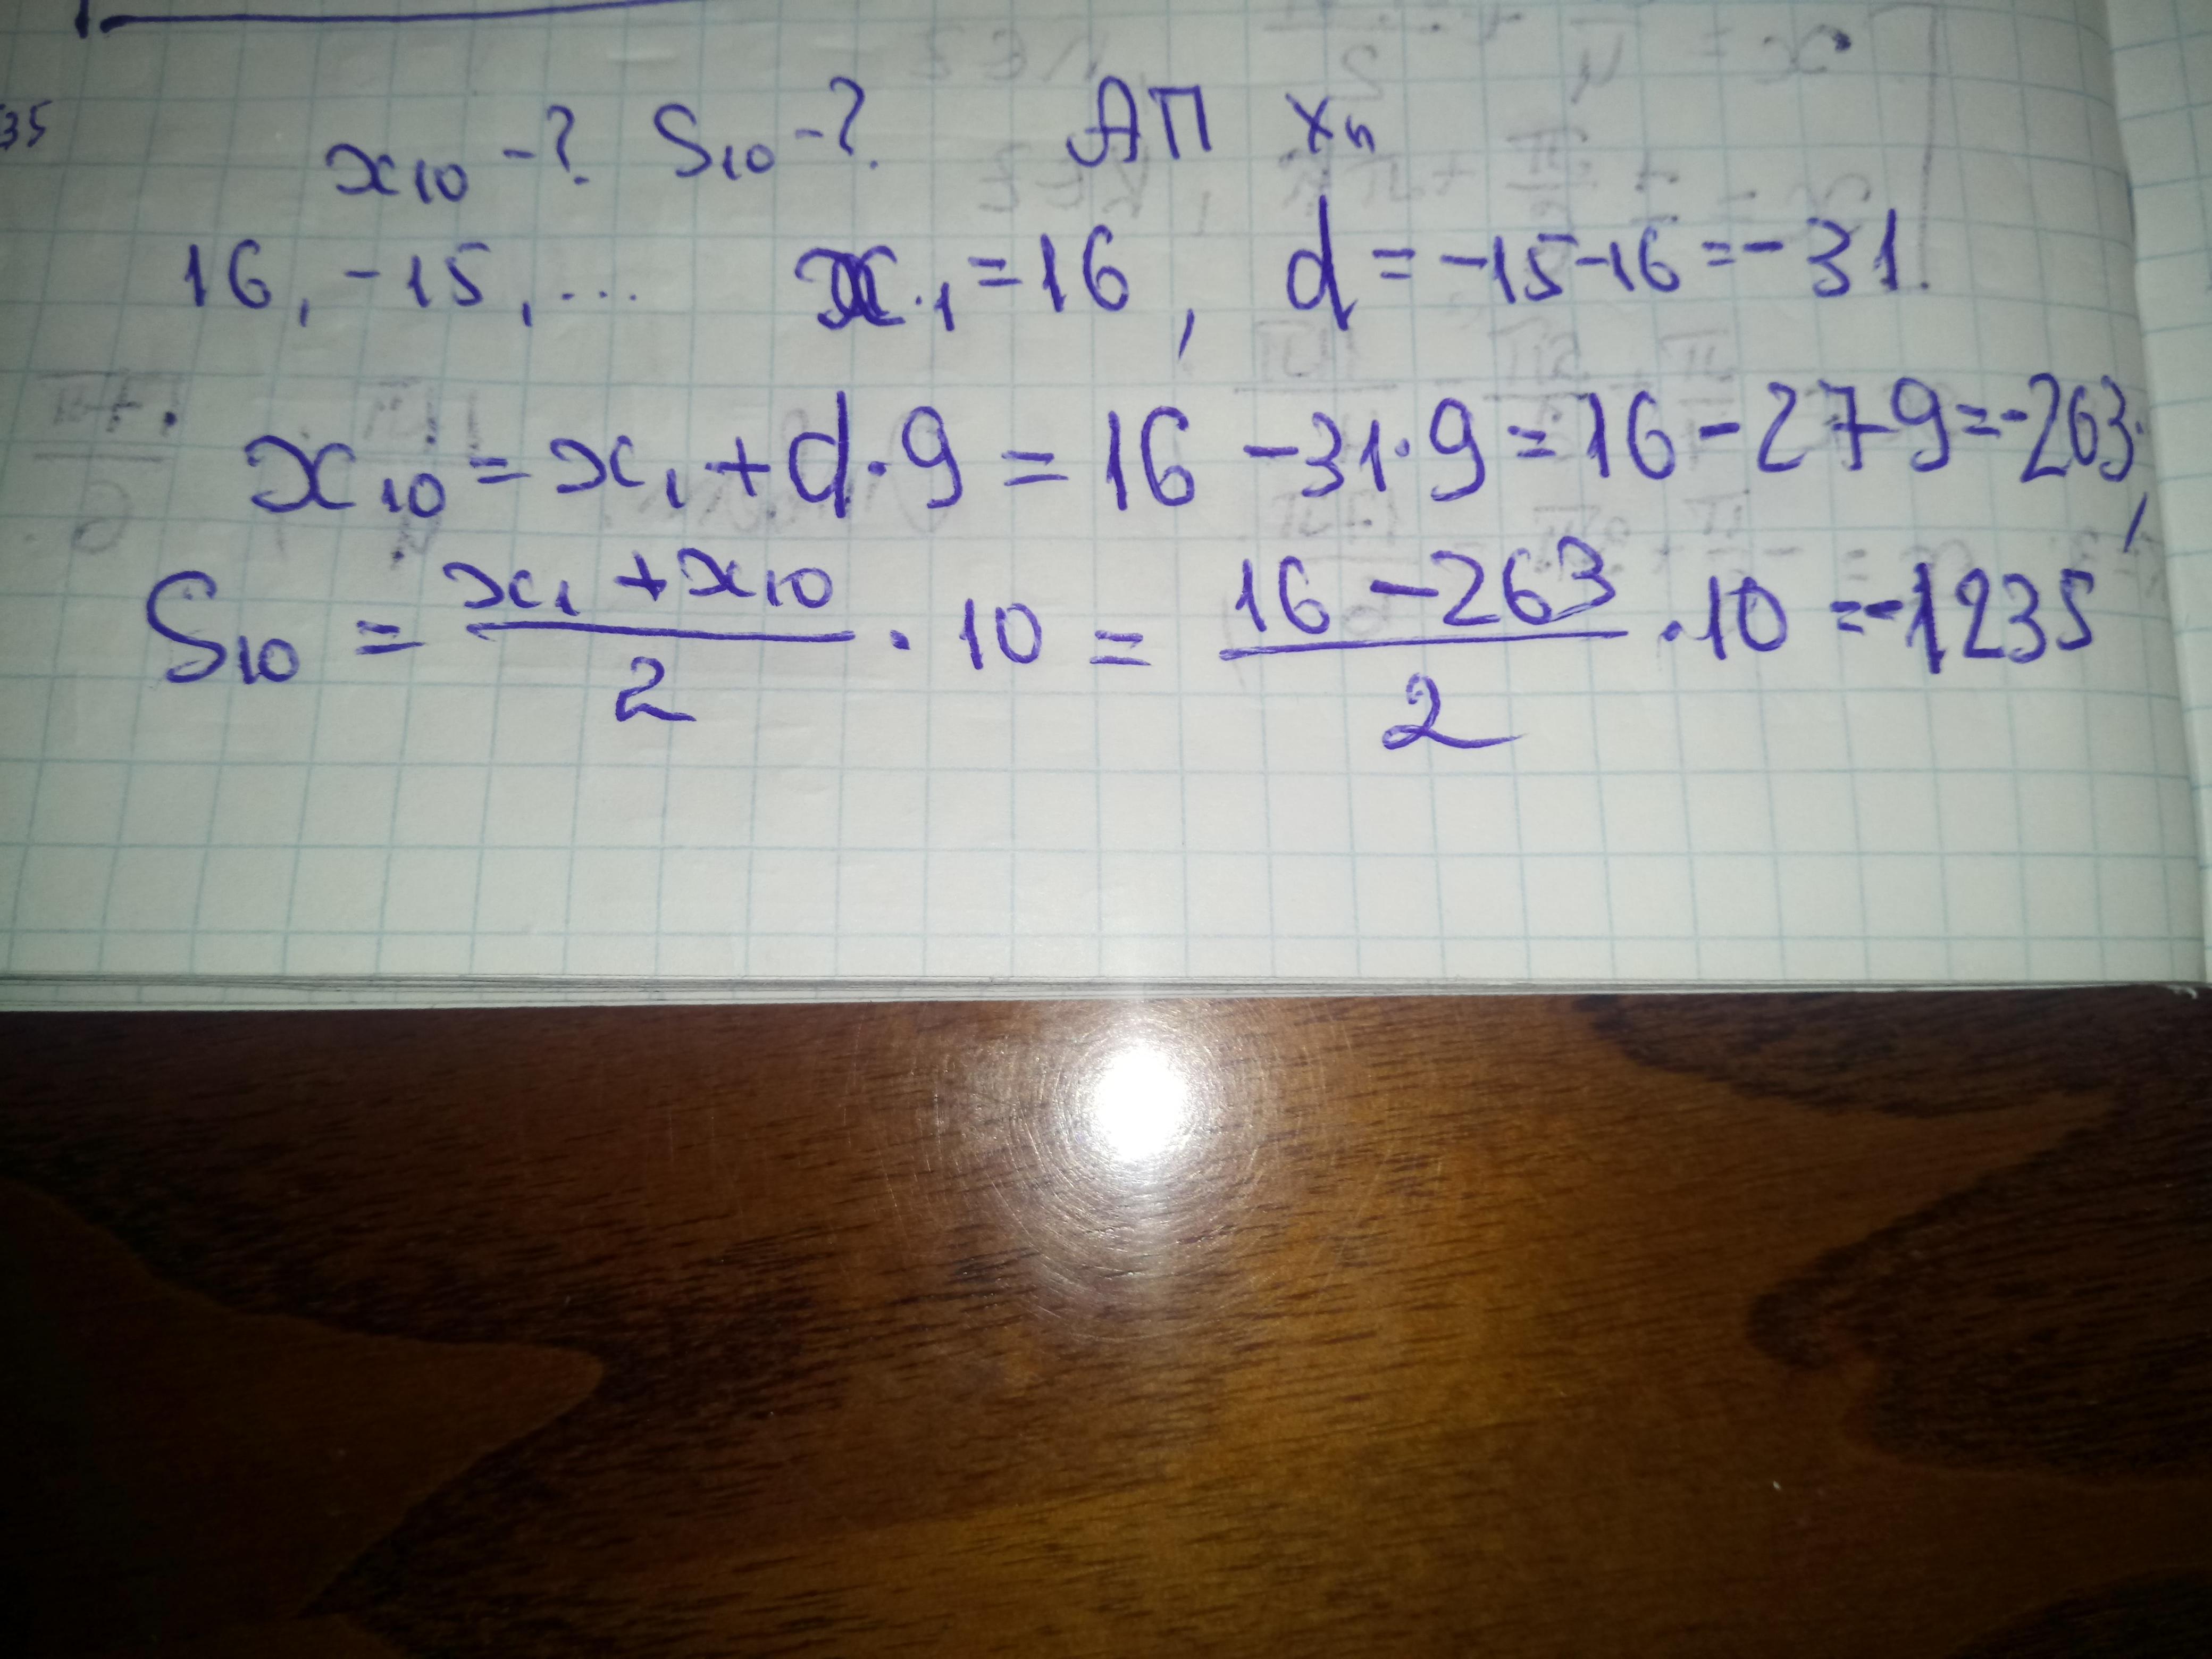 35
x₁₀ -? S₁₀ -? АП xₙ
16, -15, ... x₁ = 16, d = -15-16 = -31.
x₁₀ = x₁ + d·9 = 16 - 31·9 = 16 - 279 = -263,
S₁₀ = (x₁ + x₁₀)/2 · 10 = (16 - 263)/2 · 10 = -1235